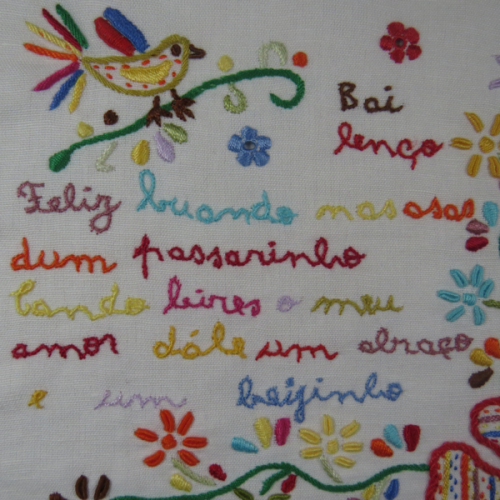 Bai
lenço
Feliz buando mas asas
dum passarinho
cando leires o meu
amor dále um abraço
e um beijinho